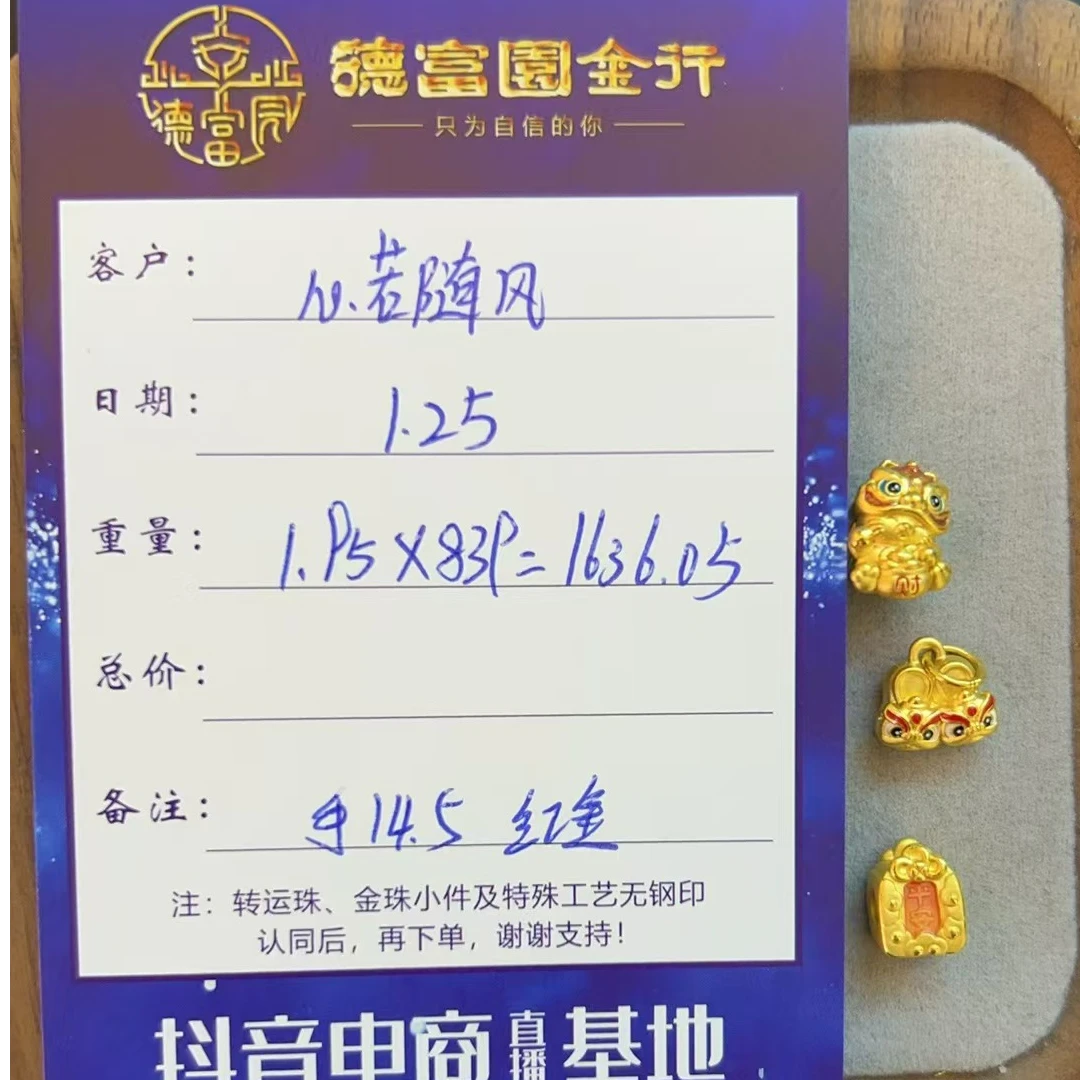 德富園
德富園金行
只为自信的你
客户： 心.若随风
日期： 1.25
重量： 1.95×839=1636.05
总价：
备注： 手14.5 红金
注：转运珠、金珠小件及特殊工艺无钢印
认同后，再下单，谢谢支持！
抖音电商直播基地
财
平安